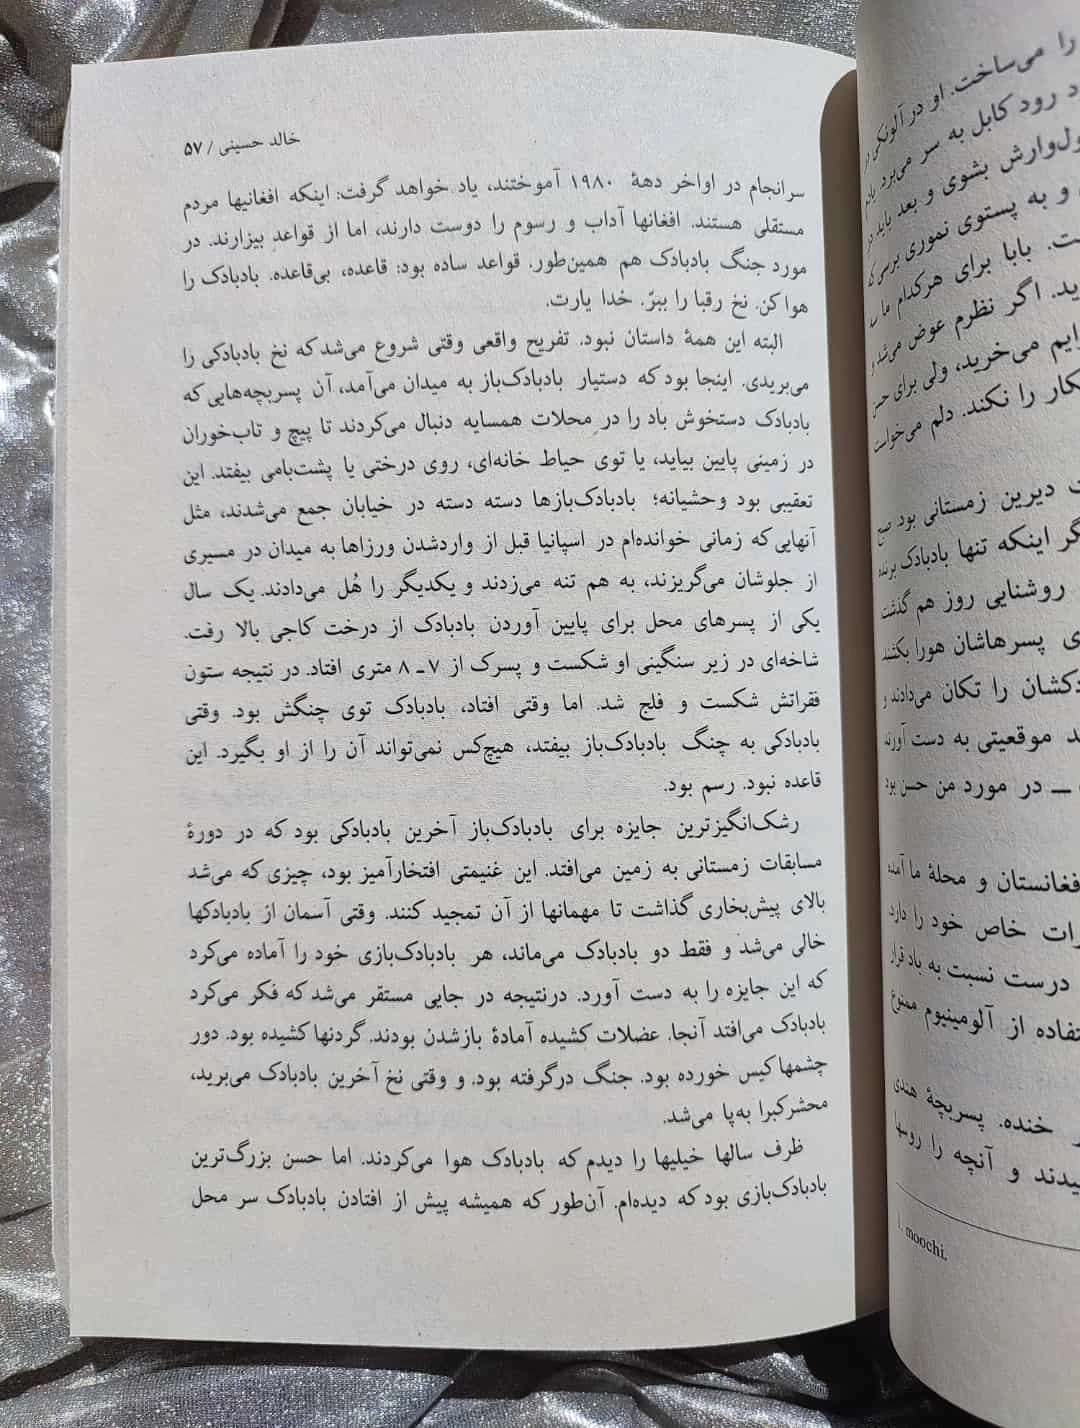 خالد حسینی / ۵۷
سرانجام در اواخر دههٔ ۱۹۸۰ آموختند، یاد خواهد گرفت: اینکه افغانیها مردم
مستقلی هستند. افغانها آداب و رسوم را دوست دارند، اما از قواعدِ بیزارند. در
مورد جنگ بادبادک هم همین‌طور. قواعد ساده بود: قاعده، بی‌قاعده. بادبادک را
هوا کن. نخ رقبا را ببرّ. خدا یارت.
البته این همهٔ داستان نبود. تفریح واقعی وقتی شروع می‌شد که نخ بادبادکی را
می‌بریدی. اینجا بود که دستیار بادبادک‌باز به میدان می‌آمد، آن پسربچه‌هایی که
بادبادک دستخوش باد را در محلات همسایه دنبال می‌کردند تا پیچ و تاب‌خوران
در زمینی پایین بیاید، یا توی حیاط خانه‌ای، روی درختی یا پشت‌بامی بیفتد. این
تعقیبی بود وحشیانه؛ بادبادک‌بازها دسته دسته در خیابان جمع می‌شدند، مثل
آنهایی که زمانی خوانده‌ام در اسپانیا قبل از واردشدن ورزاها به میدان در مسیری
از جلوشان می‌گریزند، به هم تنه می‌زدند و یکدیگر را هُل می‌دادند. یک سال
یکی از پسرهای محل برای پایین آوردن بادبادک از درخت کاجی بالا رفت.
شاخه‌ای در زیر سنگینی او شکست و پسرک از ۷ـ۸ متری افتاد. در نتیجه ستون
فقراتش شکست و فلج شد. اما وقتی افتاد، بادبادک توی چنگش بود. وقتی
بادبادکی به چنگ بادبادک‌باز بیفتد، هیچ‌کس نمی‌تواند آن را از او بگیرد. این
قاعده نبود. رسم بود.
رشک‌انگیزترین جایزه برای بادبادک‌باز آخرین بادبادکی بود که در دورهٔ
مسابقات زمستانی به زمین می‌افتد. این غنیمتی افتخارآمیز بود، چیزی که می‌شد
بالای پیش‌بخاری گذاشت تا مهمانها از آن تمجید کنند. وقتی آسمان از بادبادکها
خالی می‌شد و فقط دو بادبادک می‌ماند، هر بادبادک‌بازی خود را آماده می‌کرد
که این جایزه را به دست آورد. درنتیجه در جایی مستقر می‌شد که فکر می‌کرد
بادبادک می‌افتد آنجا. عضلات کشیده آمادهٔ بازشدن بودند. گردنها کشیده بود. دور
چشمها کیس خورده بود. جنگ درگرفته بود. و وقتی نخ آخرین بادبادک می‌برید،
محشرکبرا به‌پا می‌شد.
ظرف سالها خیلیها را دیدم که بادبادک هوا می‌کردند. اما حسن بزرگ‌ترین
بادبادک‌بازی بود که دیده‌ام. آن‌طور که همیشه پیش از افتادن بادبادک سر محل
را می‌ساخت. او در آلونکی
رود کابل به سر می‌برد.
بشوی و بعد باید
و به پستوی نموری برسی که
بابا برای هرکدام ما سه
اگر نظرم عوض می‌شد و
می‌خرید، ولی برای حسن
را نکند. دلم می‌خواست
دیرین زمستانی بود. صبح
اینکه تنها بادبادک برنده
روشنایی روز هم گذشت
پسرهاشان هورا بکشند
را تکان می‌دادند و
موقعیتی به دست آورند
ــ در مورد من حسن بود
افغانستان و محلهٔ ما آمده
خاص خود را دارد.
درست نسبت به باد قرار
از آلومینیوم ممنوع
خنده. پسربچهٔ هندی
و آنچه را روسها
1. moochi.